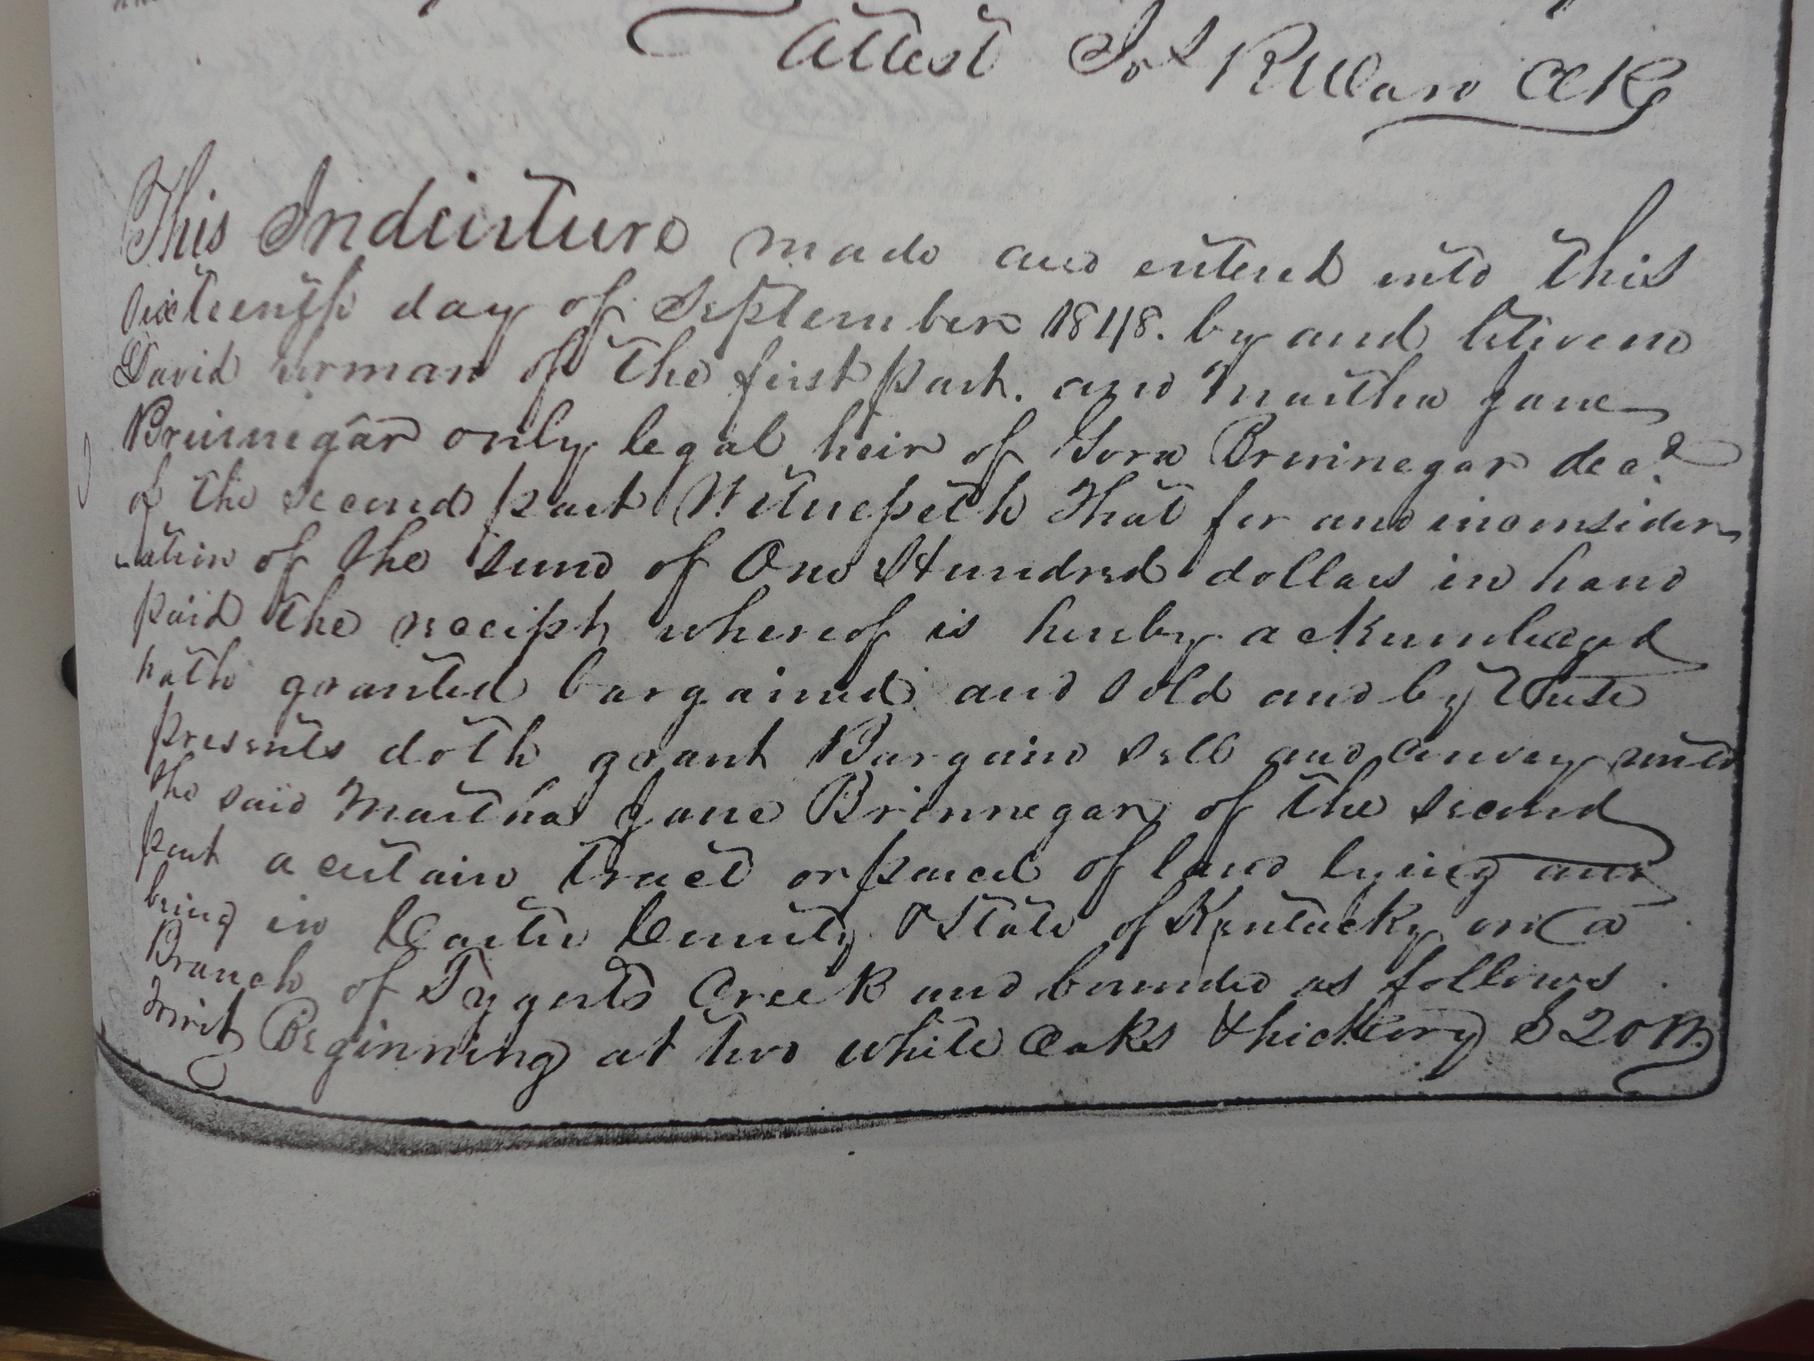 Attest Jos R Ward CCK
This Indenture made and entered into this
sixteenth day of September 1848. by and between
David Urman of the first part. and Martha Jane
Brinnegar only legal heir of Brinnegar decd
of the second part Witnesseth That for and in consider
ation of the sum of One Hundred dollars in hand
paid the receipt whereof is hereby acknowledged
hath granted bargained and sold and by these
presents doth grant Bargain sell and convey unto
the said Martha Jane Brinnegar of the second
part a certain tract or parcel of land lying and
being in Carter County & State of Kentucky on a
Branch of Tygerts Creek and bounded as follows
towit Beginning at two white oaks & hickory S 20 W.